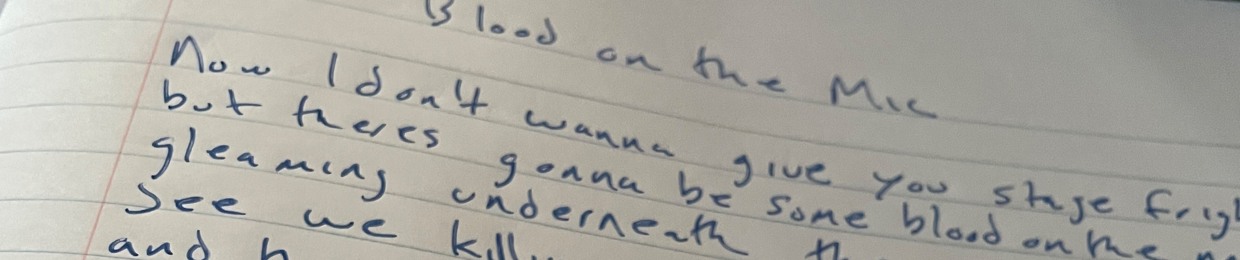 Blood on the Mic
Now I don't wanna give you stage
but theres gonna be some blood on the
gleaming underneath
See we
and